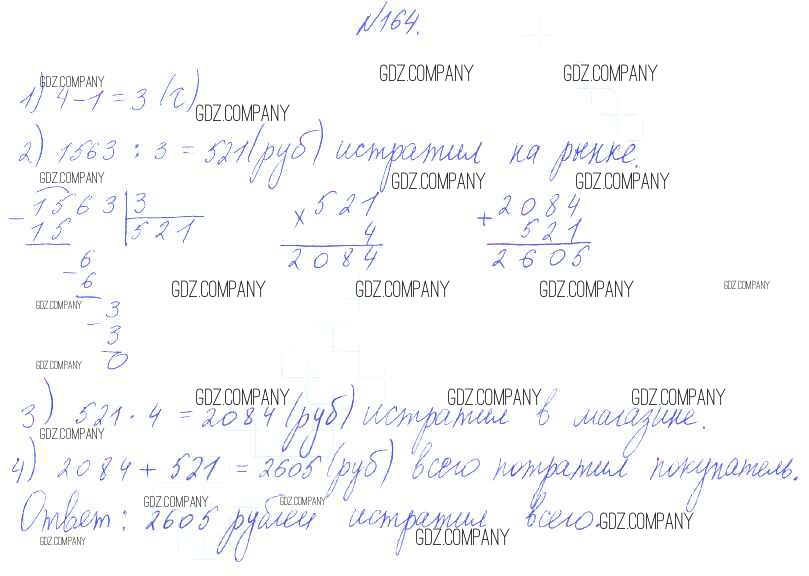 №164.
GDZ.COMPANY GDZ.COMPANY GDZ.COMPANY
1) 4-1=3 (ч)
GDZ.COMPANY
2) 1563 : 3 = 521 (руб) истратил на рынке.
GDZ.COMPANY GDZ.COMPANY GDZ.COMPANY
- 1563 | 3
15 | 521
- 6
6
- 3
3
0
× 521
4
2084
+ 2084
521
2605
GDZ.COMPANY GDZ.COMPANY GDZ.COMPANY GDZ.COMPANY
GDZ.COMPANY
GDZ.COMPANY
GDZ.COMPANY GDZ.COMPANY GDZ.COMPANY
3) 521 · 4 = 2084 (руб) истратил в магазине.
GDZ.COMPANY
4) 2084 + 521 = 2605 (руб) всего потратил покупатель.
GDZ.COMPANY GDZ.COMPANY
Ответ: 2605 рублей истратил всего.
GDZ.COMPANY
GDZ.COMPANY GDZ.COMPANY